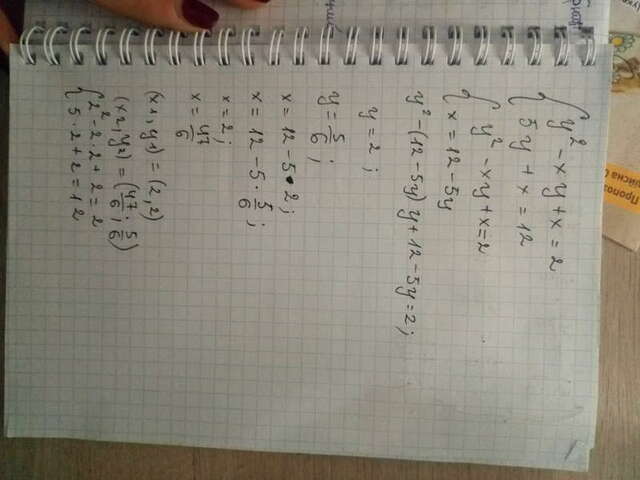 { y² - xy + x = 2
5y + x = 12
{ y² - xy + x = 2
x = 12 - 5y
y² - (12 - 5y) y + 12 - 5y = 2;
y = 2;
y = 5/6;
x = 12 - 5 · 2;
x = 12 - 5 · 5/6;
x = 2;
x = 47/6
(x1, y1) = (2, 2)
(x2, y2) = (47/6; 5/6)
{ 2² - 2·2 + 2 = 2
5·2 + 2 = 12